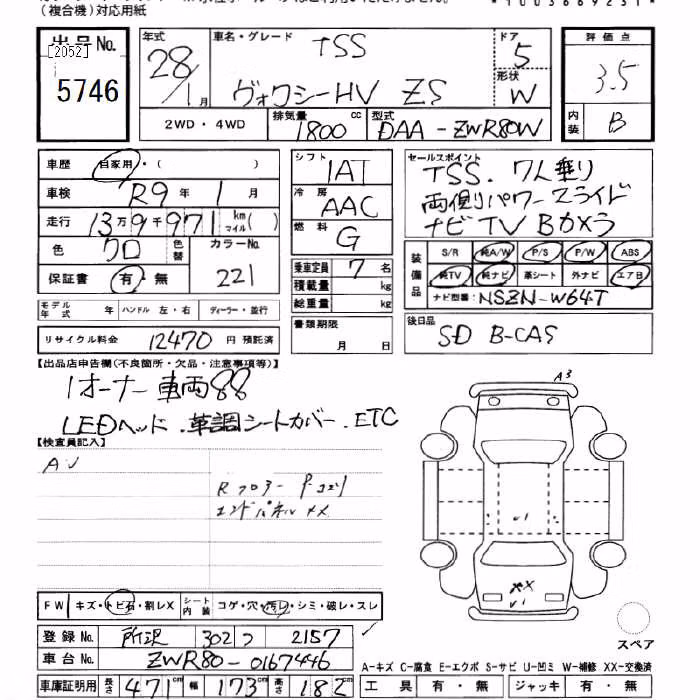 (複合機)対応用紙
出品No. 年式 車名・グレード TSS ドア 5 評価点
[2052] 28/1月 ヴォクシーHV ZS 形状 W 3.5
5746 2WD・4WD 排気量 1800 cc 型式 DAA-ZWR80W 内装 B
車歴 自家用・( ) シフト 1AT セールスポイント TSS. 7人乗り
車検 R9年 1月 冷房 AAC 両側パワースライド
走行 13万9千971 km マイル( ) 燃料 G ナビTV Bカメラ
色 クロ 色替 カラーNo. 221 乗車定員 7名 装備品 S/R 純A/W P/S P/W ABS
保証書 有・無 積載量 kg 純TV 純ナビ 革シート 外ナビ エアB
モデル年式 年 ハンドル 左・右 ディーラー・並行 総重量 kg ナビ型番: NSZN-W64T
リサイクル料金 12470 円 預託済 書類期限 月 日 後日品 SD B-CAS
【出品店申告欄(不良箇所・欠品・注意事項等)】
1オーナー 車両88 A3
LEDヘッド.革調シートカバー.ETC
【検査員記入】
Rフロアー
エンドパネルXX
XX
FW キズ・トビ石・割レX シート内装 コゲ・穴・汚レ・シミ・破レ・スレ
登録No. 所沢 302 つ 2157 スペア
車台No. ZWR80-0167446 A-キズ C-腐食 E-エクボ S-サビ U-凹ミ W-補修 XX-交換済
車庫証明用 長さ 471cm 幅 173cm 高さ 182cm 工具 有・無 ジャッキ 有・無